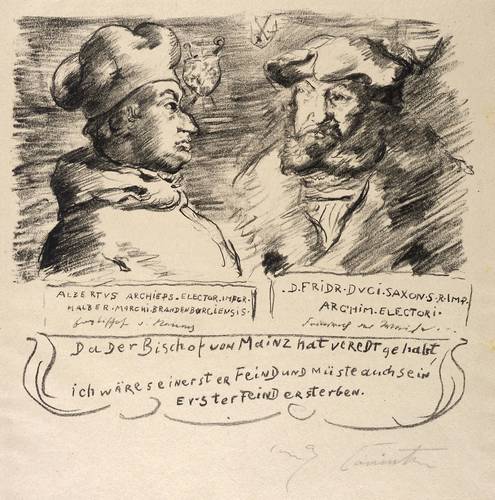 ALBERTVS ARCHIEPS. ELECTOR. IMPER.
HALBER. MORCHI. BRANDENBØRGENSIS.
. D. FRIDR. DVCI. SAXONS. R. IMP.
ARCHIM. ELECTORI.
Da Der Bischof von Mainz hat veredt gehabt,
ich wäre sein erster Feind und müste auch sein
Erster Feind ersterben.